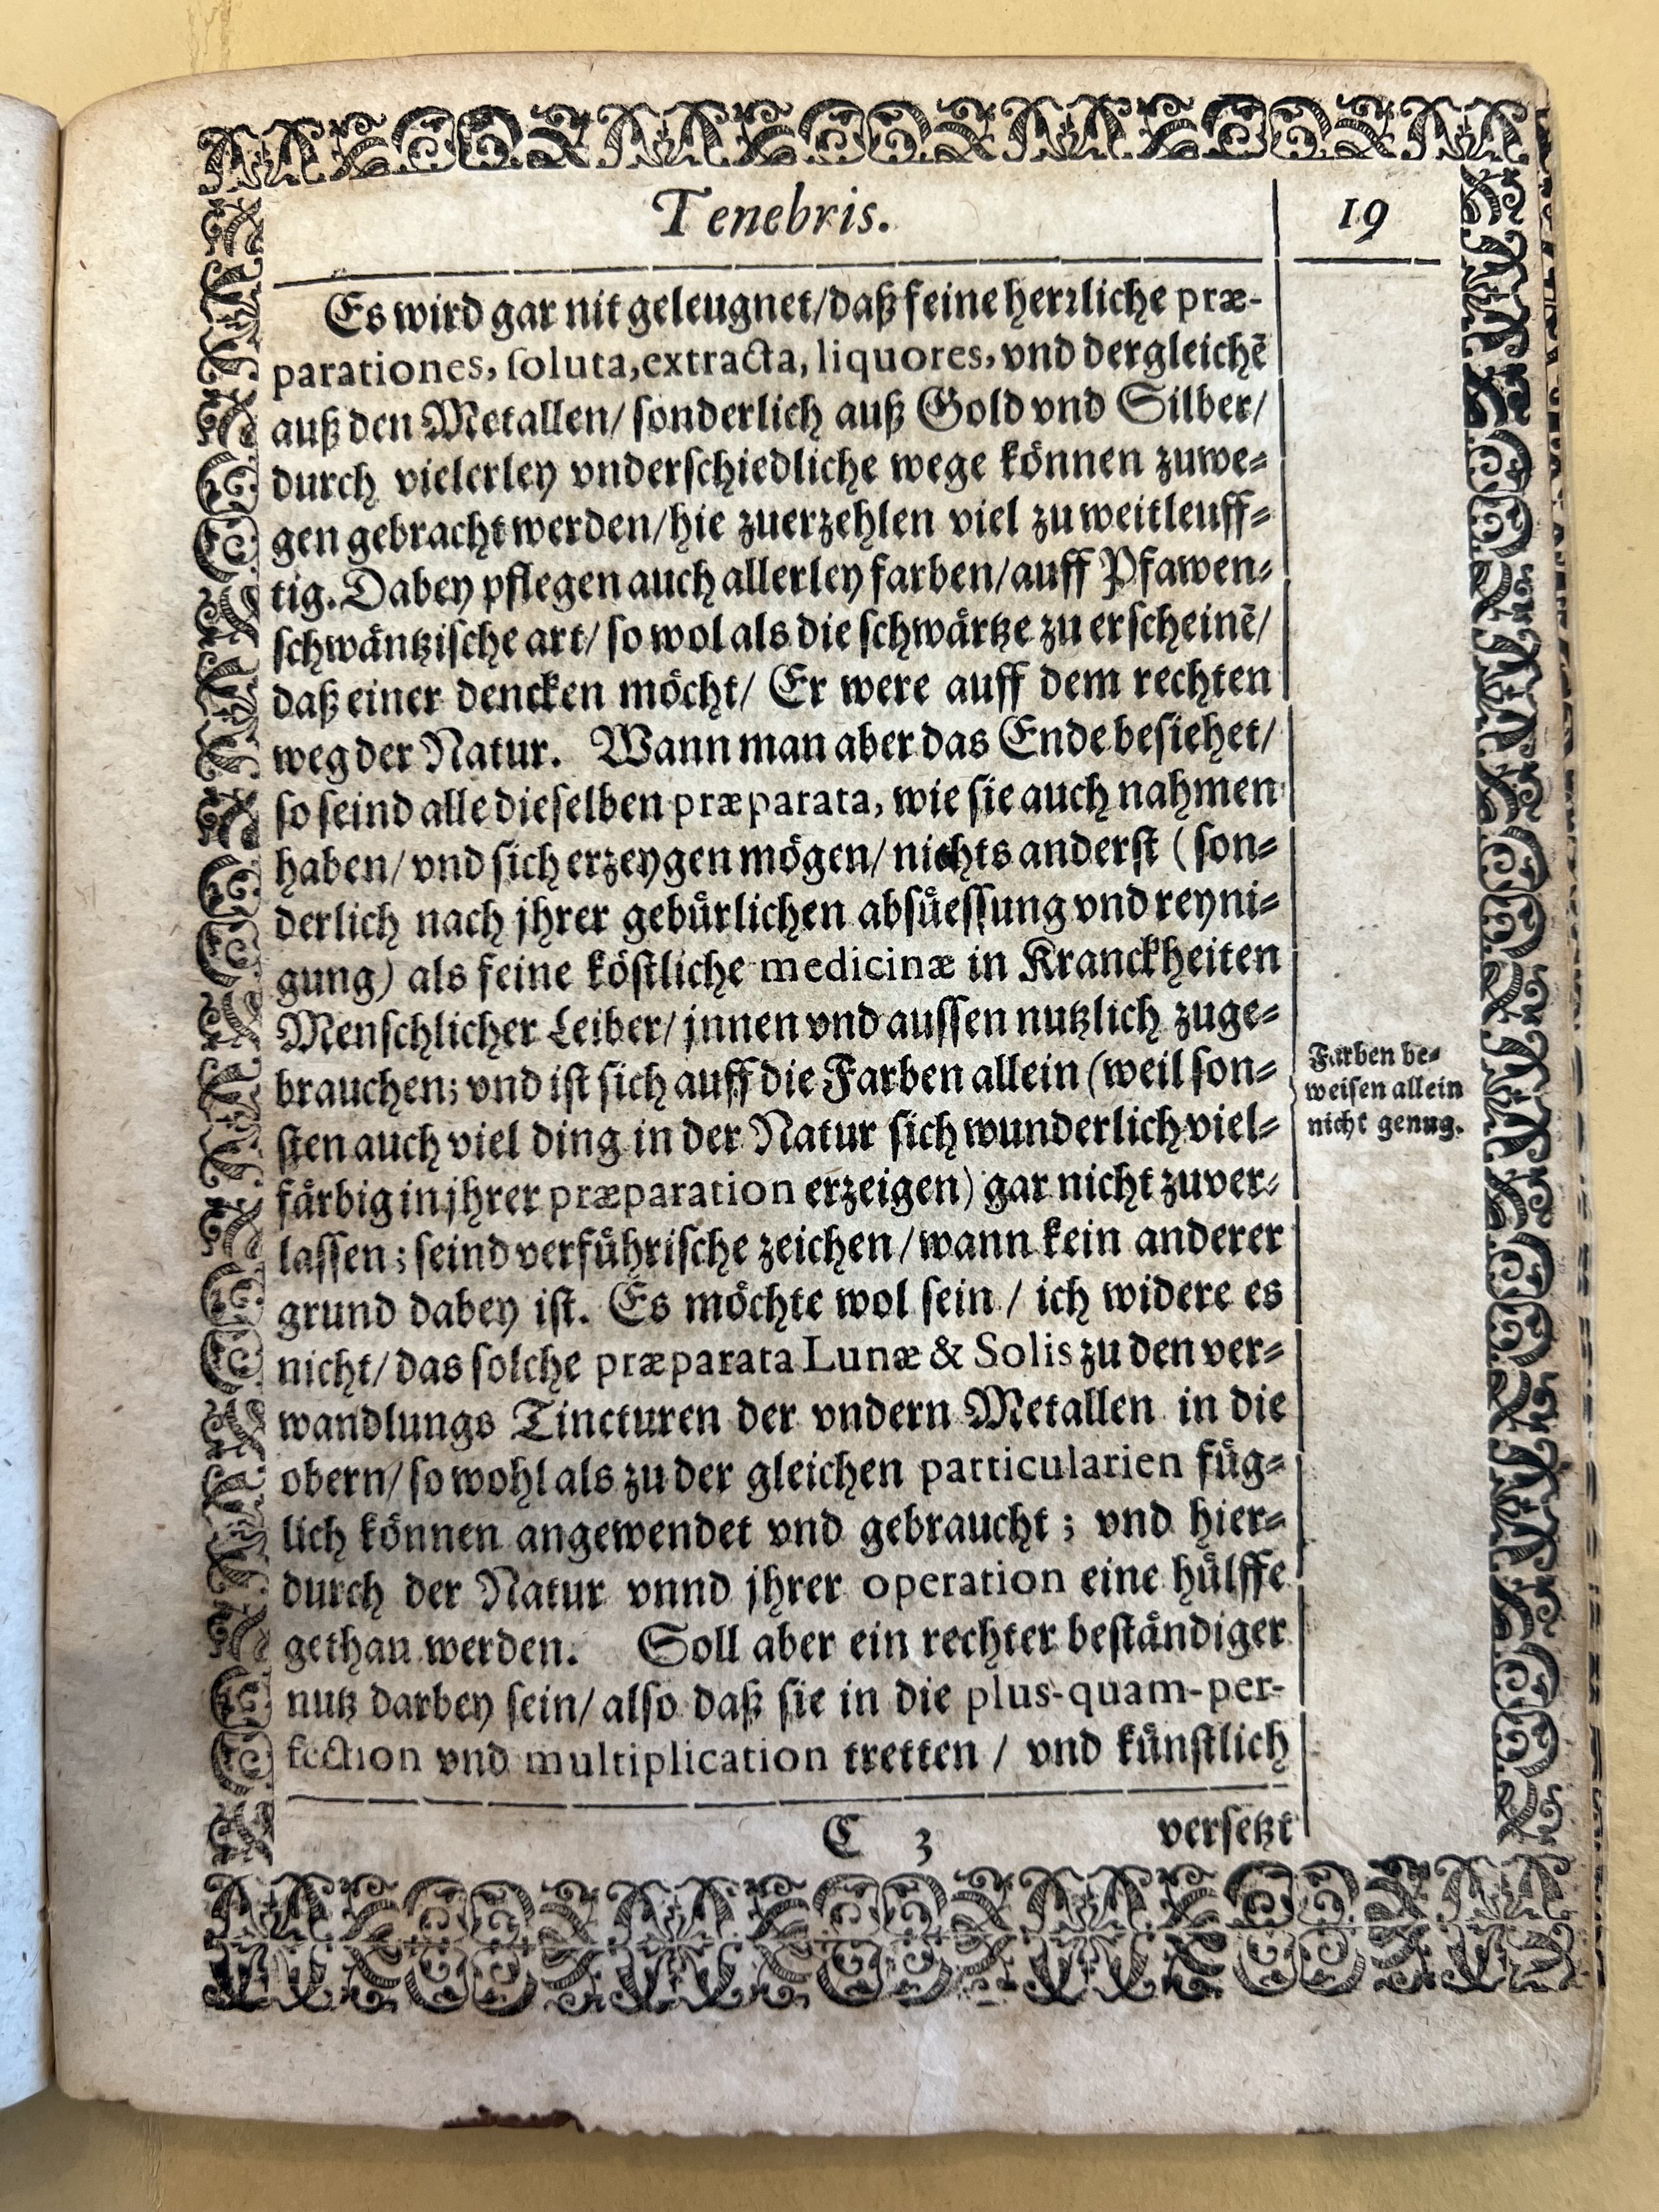 Tenebris.
19
Es wird gar nit geleugnet/daß feine herꝛliche præ-
parationes, ſoluta, extracta, liquores, vnd dergleichẽ
auß den Metallen/ ſonderlich auß Gold vnd Silber/
durch vielerley vnderſchiedliche wege koͤnnen zuwe-
gen gebracht werden/hie zuerzehlen viel zu weitleuff-
tig. Dabey pflegen auch allerley farben/auff Pfawen-
ſchwaͤntziſche art/ ſo wol als die ſchwaͤrtze zu erſcheinẽ/
daß einer dencken moͤcht/ Er were auff dem rechten
weg der Natur. Wann man aber das Ende beſiehet/
ſo ſeind alle dieſelben præparata, wie ſie auch nahmen
haben/ vnd ſich erzeygen moͤgen/ nichts anderſt (ſon-
derlich nach jhrer gebuͤrlichen abſuͤeſſung vnd reyni-
gung) als feine koͤſtliche medicinæ in Kranckheiten
Menſchlicher Leiber/ jnnen vnd auſſen nutzlich zuge-
brauchen; vnd iſt ſich auff die Farben allein (weil ſon-
ſten auch viel ding in der Natur ſich wunderlich viel-
faͤrbig in jhrer præparation erzeigen) gar nicht zuver-
laſſen; ſeind verfuͤhriſche zeichen/wann kein anderer
grund dabey iſt. Es moͤchte wol ſein / ich widere es
nicht/ das ſolche præparata Lunæ & Solis zu den ver-
wandlungs Tincturen der vndern Metallen in die
obern/ ſo wohl als zu der gleichen particularien fuͤg-
lich koͤnnen angewendet vnd gebraucht; vnd hier-
durch der Natur vnnd jhrer operation eine huͤlffe
gethan werden. Soll aber ein rechter beſtaͤndiger
nutz darbey ſein/ alſo daß ſie in die plus-quam-per-
fection vnd multiplication tretten / vnd kuͤnſtlich
Farben be-
weiſen allein
nicht genug.
C 3
verſetzt